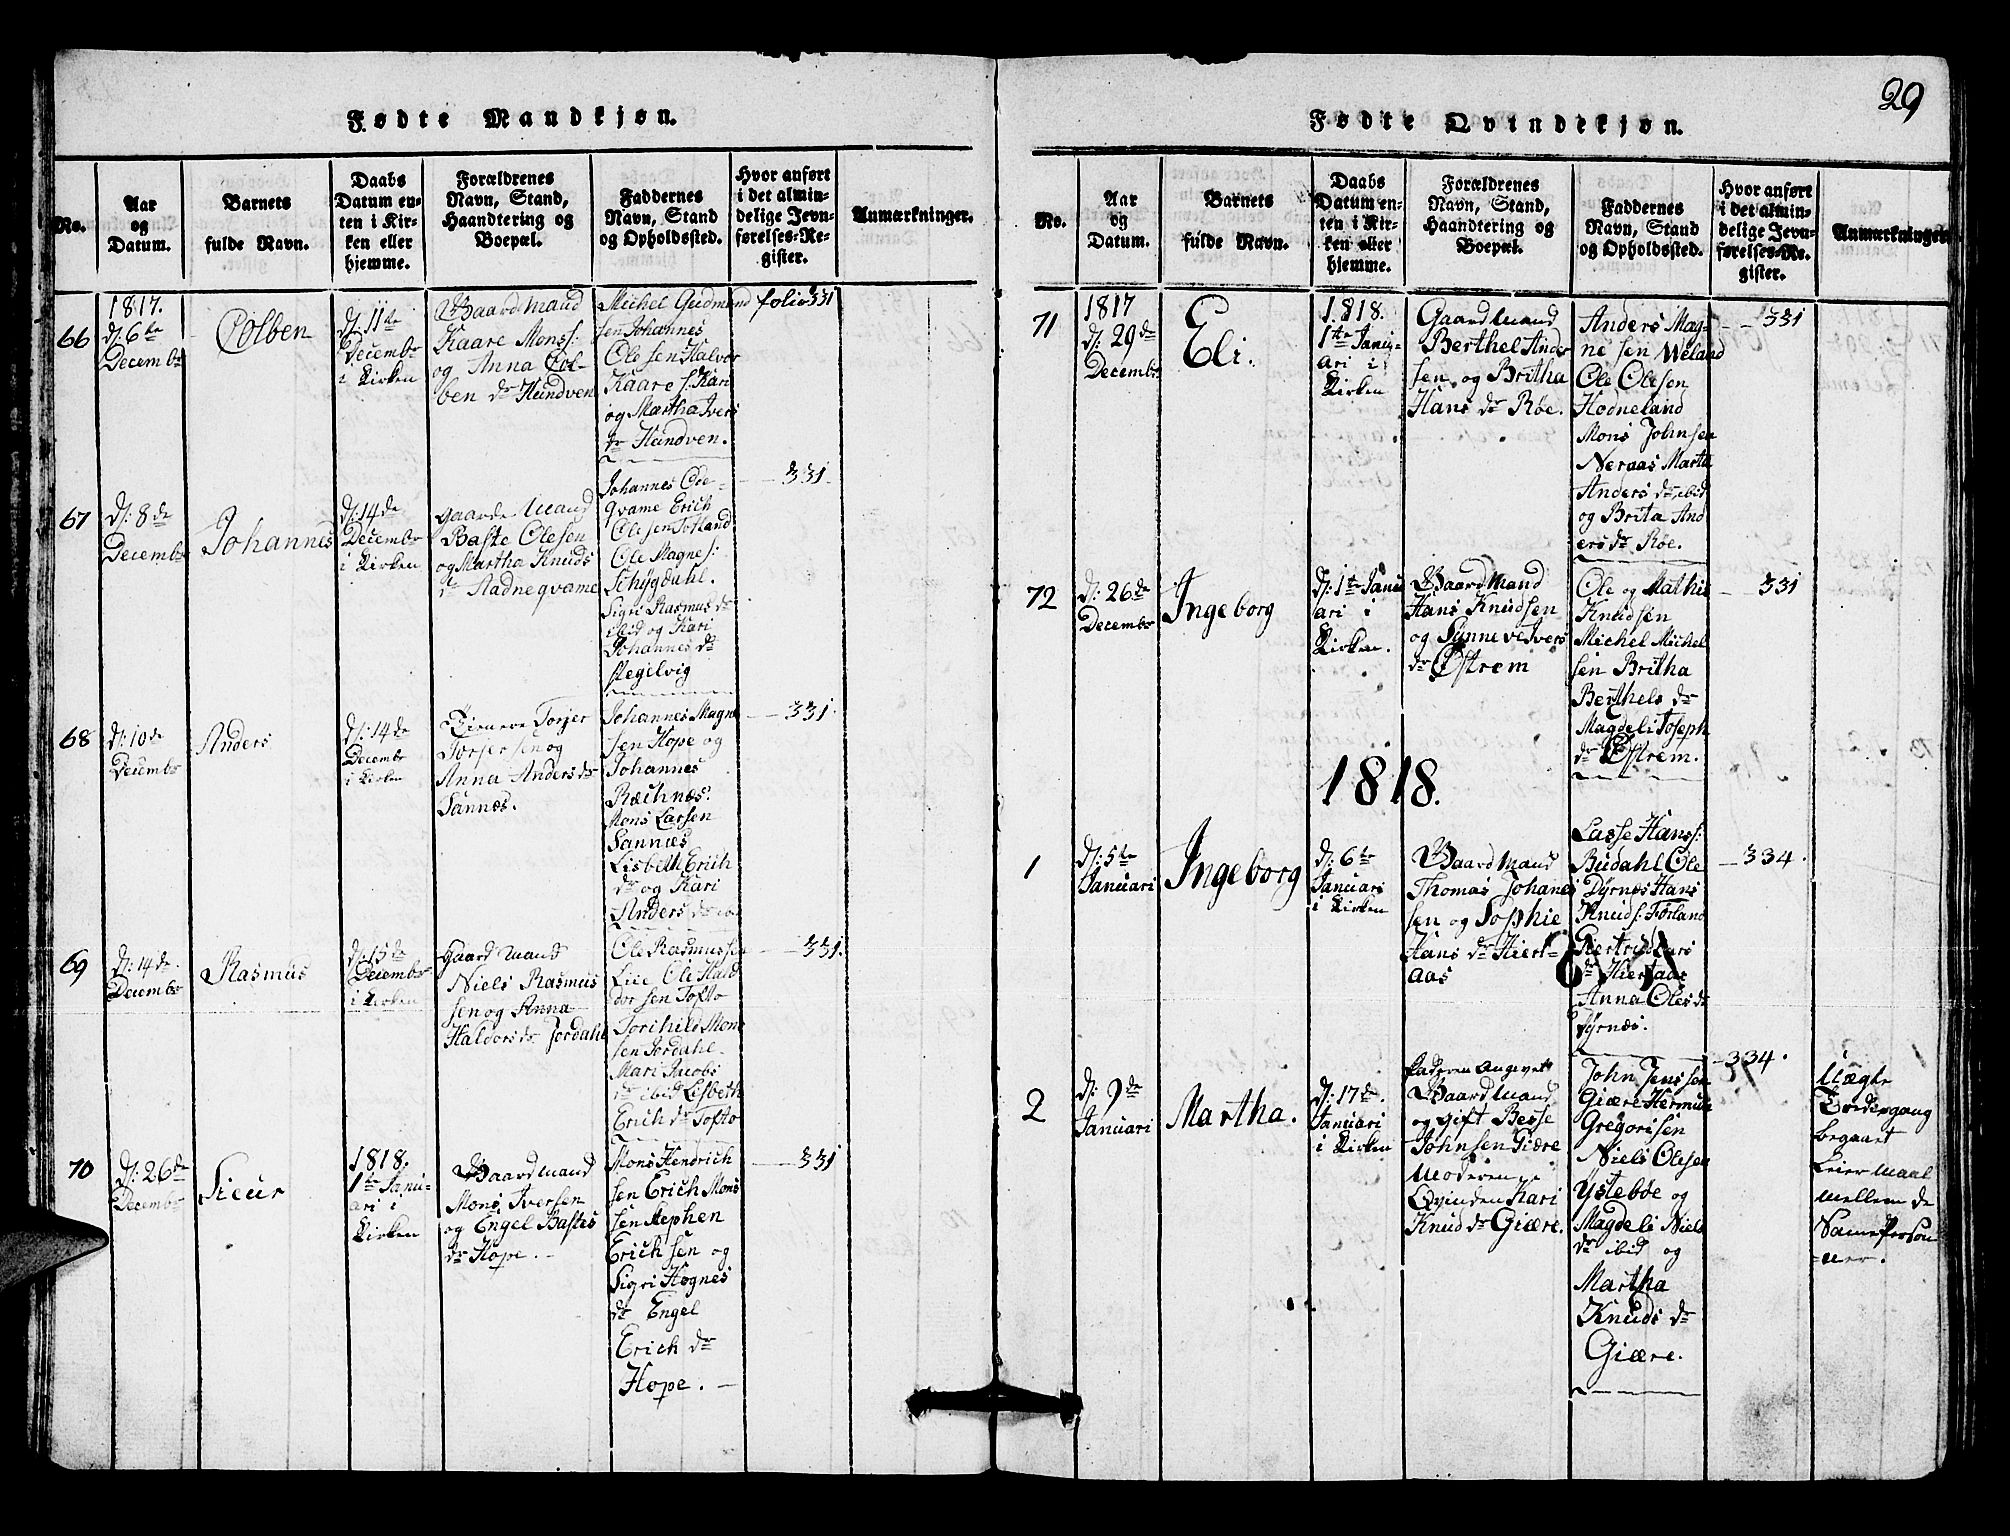 29
Fødte Mandkjøn.
No.
Aar
og
Datum.
Barnets
fulde Navn.
Daabs
Datum en-
ten i Kir-
ken eller
hjemme.
Forældrenes
Navn, Stand,
Haandtering og
Boepæl.
Faddernes
Navn, Stand
og Opholdssted.
Hvor anført
i det almin-
delige Jevn-
førelses-Re-
gister.
Anmærkninger.
66
1817.
d/: 6te
Decembr
Colben
d/: 11te
Decembr
i Kirken
Gaardmand
Kaare Mons/:
og Anna Col-
ben dr Hundven
Michel Gudmund
sen Johannes
Olesen Halvor
Kaare s. Kari
og Martha Ivers
dr Hundven.
folio 331
67
d/: 8de
Decembr
Johannes
d/: 14de
Decembr
i Kirken
gaarde Mand
Baste Olesen
og Martha Knuds
dr Aadneqvame
Johannes Coe-
qvame Erich
Olesen Totland
Ole Magnes/:
Schygdahl.
Sigri Rasmus dr
ibid og Kari
Johannes dr
Stegelvig
331.
68
d/: 10de
Decembr
Anders
d/: 14de
Decembr
i Kirken
Torjer
Torjersen og
Anna Anders dr
Sannæs.
Johannes Magne
sen Hope og
Johannes
Ræchnæs.
Mons Larsen
Sannæs
Lisbeth Erich
dr og Kari
Anders dr
331.
69
d/: 14de
Decembr
Rasmus
d/: 15de
Decembr
i Kirken
Gaard Mand
Niels Rasmus
sen og Anna
Haldors dr Jordahl
Ole Rasmussen
Lie Ole Hald
dor sen Tofto
Torchild Mon
sen Jordahl.
Mari Jacobs
dr ibid Lisbeth
Erich dr Tofto
331.
70
d/: 26de
Decembr
Sieur
1818.
1te Janu-
ari i
Kirken
Gaardmand
Mons Iversen
og Engel Bastes
dr Hope.
Mons Hendrich
sen Erich Mons
sen Stephen
Erichsen og
Sigri Hognes
dr Engel
Erich dr
Hope.
331
Fødte Qvindekjøn.
No.
Aar
og
Datum.
Barnets
fulde Navn.
Daabs
Datum en-
ten i Kir-
ken eller
hjemme.
Forældrenes
Navn, Stand,
Haandtering og
Boepæl.
Faddernes
Navn, Stand
og Opholdssted.
Hvor anført
i det almin-
delige Jevn-
førelses-Re-
gister.
Anmærkninger
71
1817
d/: 29de
Decembr
Eli.
1818.
1te Janu-
ari i
Kirken
Gaardmand
Berthel Ander
sen og Britha
Hans dr Røe.
Anders Mag-
nesen Meland
Ole Olesen
Hodneland
Mons Johnsen
Neraas Martha
Anders dr ibid
og Brita And
ers dr Røe.
331
72
d/: 26de
Decembr
Ingeborg
d/: 1te Janu
ari i
Kirken.
Gaardmand
Hans Knudsen
og Synneve Ivers
dr Østrem
Ole og Mathis
Knudsen
Michel Michel
sen Britha
Berthels dr
Magdeli Joseph
dr Østrem.
331
1818.
1
d/: 5te
Januari
Ingeborg
d/: 6te
Januari
i Kirken
Gaardmand
Thomas Johanes
sen og Sophie
Hans dr Hiert-
aas
Lasse Hans/:
Budahl Ole
Dyrnes Hans
Knuds/: Førland
Giertrud Lars
dr Hiertaas
Anna Oles dr
Dyrnes.
334.
2
d/: 9de
Januari
Martha.
d/: 17de.
Januari
i Kirken
Faderen Angivet
Gaardmand
og Gift Besse
Johnsen Giære
Moderen
Qvinden Kari
Knud dr Giære.
John Jenssen
Giære Hermun
Gregorisen
Niels Olesen
Ystebøe og
Magdeli Niels
dr ibid og
Martha
Knuds dr
Giære.
334.
Uægte
begaaet
Leiermaal
mellem de
Samme Person-
-ner.